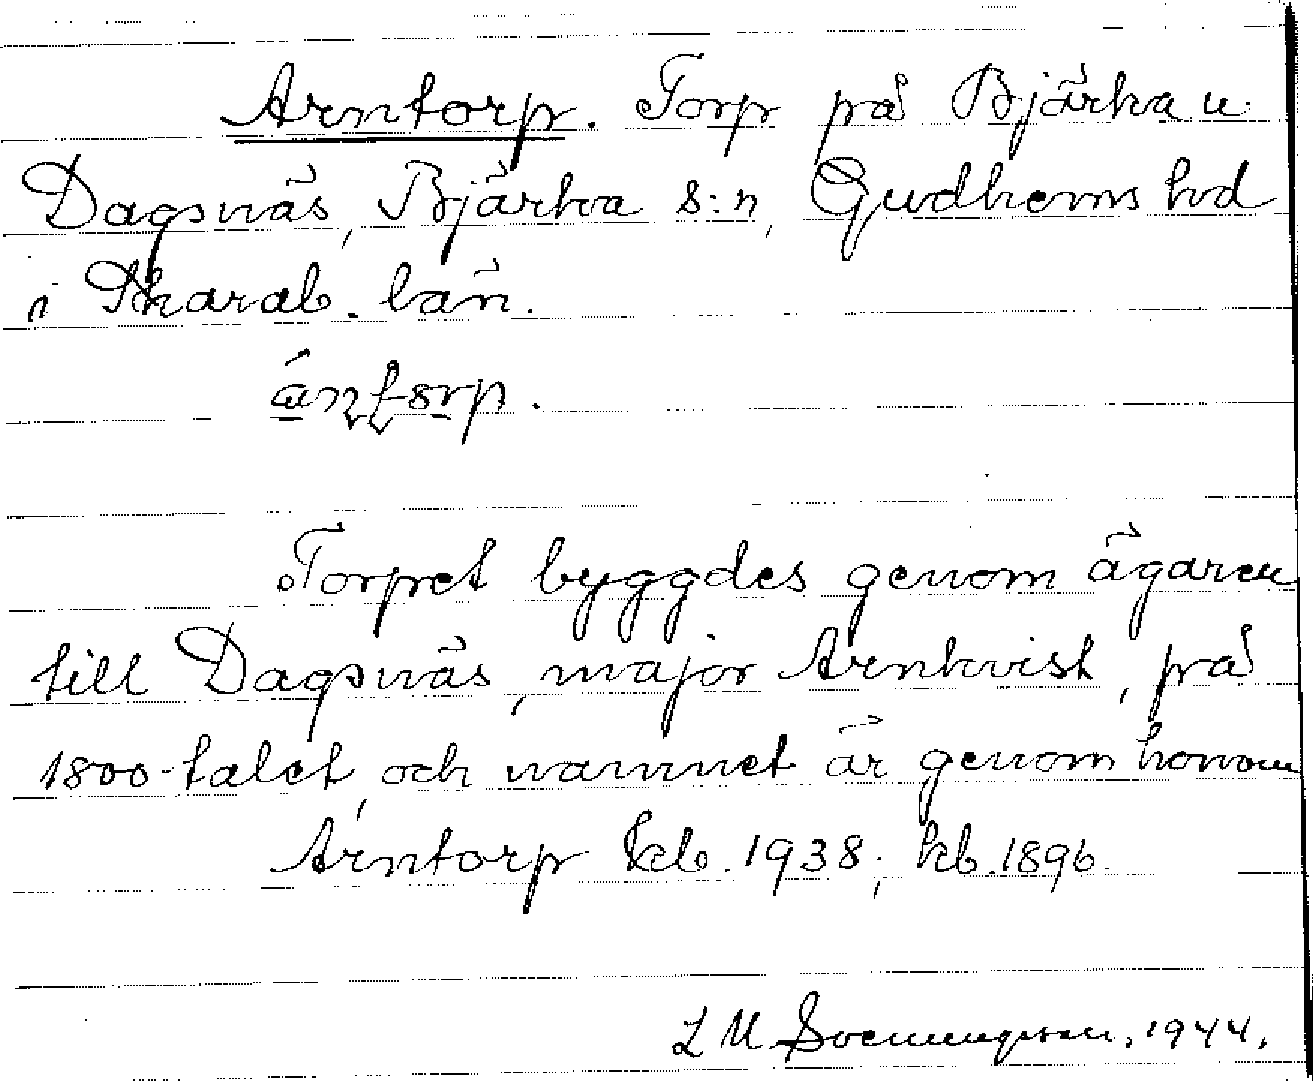 Arntorp. Torp på Bjärka u.
Dagsnäs, Bjärka s:n, Gudhems hd
i Skarab. län.
Torpet byggdes genom ägaren
till Dagsnäs, major Arnkvist, på
1800-talet, och namnet är genom honom
Arntorp kb. 1938; kb. 1896.
L M Svenungsson, 1944.